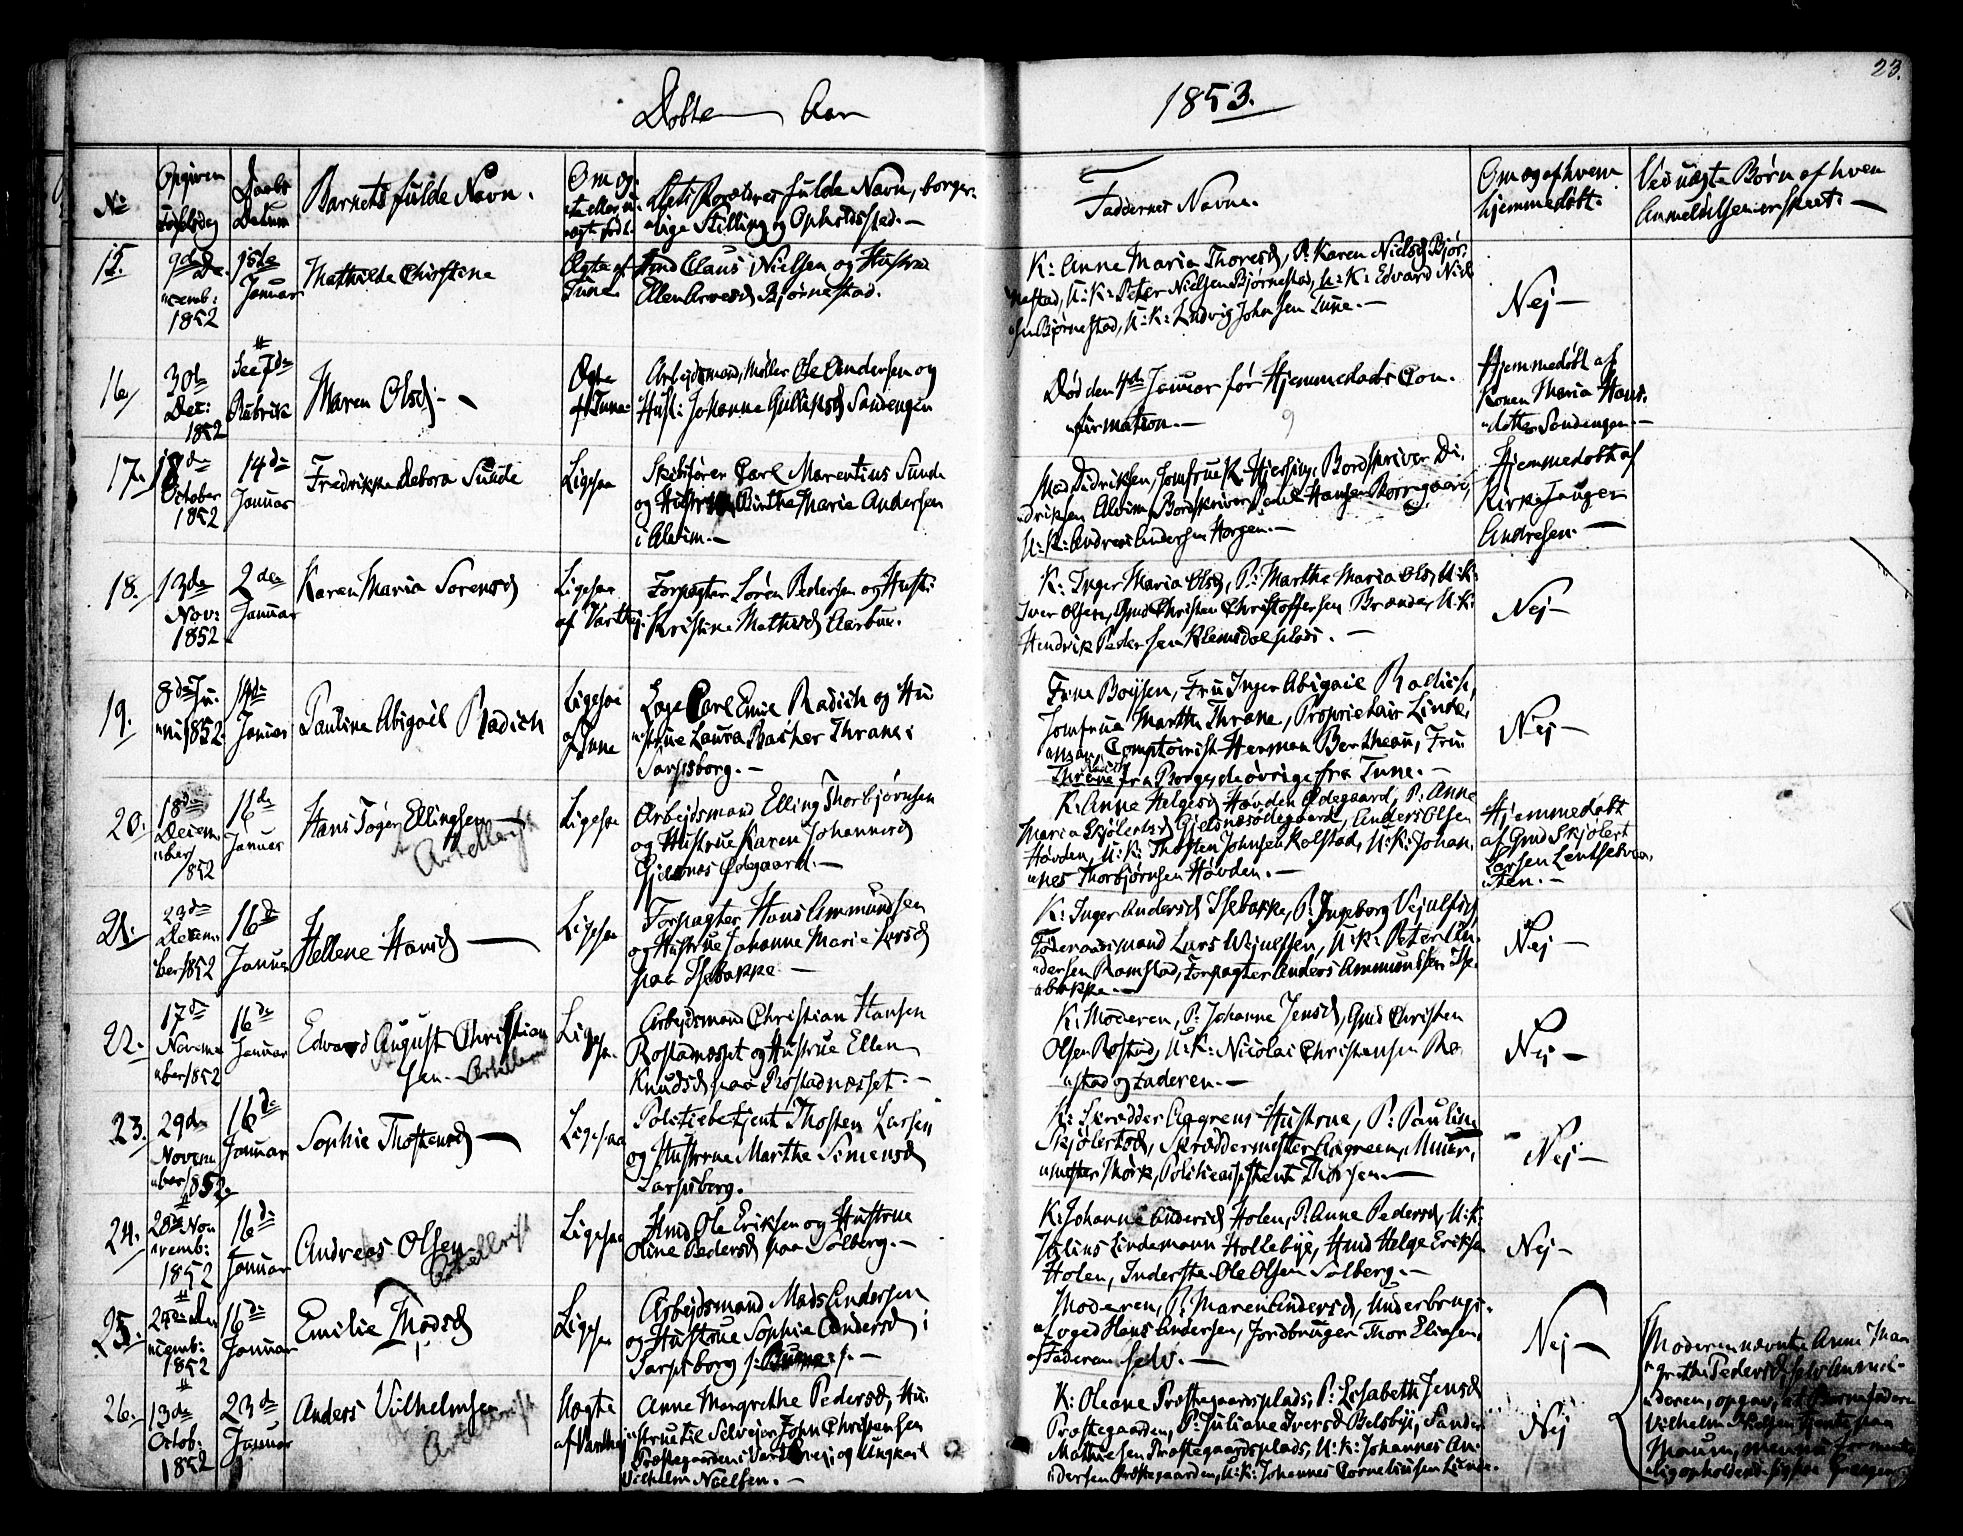 23.
Døbte Aar 1853.
No
Opgiven
Fødselsdag
Daabs
Datum
Barnets fulde Navn.
Om æg-
te eller u-
ægte født.
Forældres fulde Navn, borger-
lige Stilling og Opholdssted.
Faddernes Navne.
Om og af hvem
hjemmedøbt.
Ved uægte Børn af hvem
Anmeldelsen er skeet.
15.
9de De-
cemb:
1852
15de
Januar
Mathilde Christine
Ægte af
Tune
Claus Nielsen og Hustrue
Ellen Bjørnestad.
K: Anne Maria Thoresd, P: Karen Nielsd Bjør-
nestad, U:K: Peter Nielsen Bjørnestad, U:K: Edvard Niel-
sen Bjørnestad, U:K: Ludvig Johnsen Tune.
Nej
16.
30te
Dec:
1852
See 7de
Rubrik
Maren Olsd
Ægte
af Tune
Arbejdsmand, Møller Ole Andersen og
Hust: Johanne Gulliksd Sandengen
Død den 4de Januar før Hjemmedaabs Con-
firmation.
Hjemmedøbt af
Konen Maria Hans-
datter Sandengen.
17.
18de
October
1852
14de
Januar
Fredrikke Debora Sunde
Ligesaa
Skibsfører Carl Marentius Sunde
og Hustrue Birthe Marie Andersen
i Alvim.
Mad Didriksen, Jomfrue K. Hjersing, Bordskriver Di-
driksen Alvim, Bordskriver Hansen Borregaard,
U:K: Andreas Andersen Horgen.
Hjemmedøbt af
Kirkesanger
Andresen.
18.
13de
Nov:
1852
2den
Januar
Karen Maria Sørensd
Ligesaa
af Varteig
Forpagter Søren Pedersen og Hust:
Kristine Mathisd Aarbue.
K: Inger Maria Olsd, P: Marthe Maria Olsd, U:K:
Iver Olsen, Gmd Christen Christoffersen Brande, U:K:
Hendrik Pedersen Klemsdalsplads.
Nej
19.
8de Ju-
ni 1852.
14de
Januar
Pauline Abigael Radich
Ligesaa
af Tune
Carl Emil Radich og Hu-
strue Laura Basher Thrane i
Sarpsborg.
Frue Boysen, Fru Inger Abigael Radich,
Jomfrue Marthe Thrane, Proprietair Linde-
mann, Comptoirist Herman Bertheau, Fru
Thrane fra Borge, de øvrige fra Tune.
Nej
20.
18de
Decem-
ber
1852
16de
Januar
Hans Tøger Ellingsen
Artellerist
Ligesaa
Arbejdsmand Elling Thorbjørnsen
og Hustrue Karen Johannesd
Gjelsnæs Ødegaard.
K: Anne Helgesd Høvden Ødegaard, P: Anne
Maria Skjølertsd Gjelsnæsødegaard, Anders Olsen
Høvden, U:K: Thosten Johnsen Kolstad, U:K: Johan-
nes Thorbjørnsen Høvden.
Hjemmedøbt
af Gmd Skjølert
Larsen
21.
23de
Decem-
ber 1852
16de
Januar
Hellene Hansd
Ligesaa
Forpagter Hans Ammundsen
og Hustrue Johanne Marie Larsd
paa Isebakke
K: Inger Andersd Isebakke, P: Ingeborg Vejulfsd,
Føderaadsmand Lars Wejulfsen, U:K: Peter An-
dersen Ramstad, Forpagter Anders Ammundsen Ise-
bakke.
Nej
22.
17de
Novem-
ber 1852
16de
Januar
Edvard August Christian-
sen. Artellerist
Ligesaa
Arbejdsmand Christian Hansen
Rostadnæsset og Hustrue Ellen
Knudsd paa Rostadnæsset.
K: Moderen, P: Johanne Jensd, Gmd Christen
Olsen Rostad, U:K: Nicolai Christensen Ro-
stad og Faderen.
Nej
23.
29de
Novem-
ber 1852
16de
Januar
Sophie Thostensd
Ligesaa
Politiebetjent Thosten Larsen
og Hustrue Marthe Simensd
Sarpsborg.
K: Skrædder Aagrens Hustrue, P: Pauline
Skjølertsd, Skræddermester Aagreen, Muur-
mester Mørk, Politieassistent Thorsen.
Nej
24.
28de Nov-
vemb:
1852
16de
Januar
Andreas Olsen
Artellerist
Ligesaa
Hmd Ole Eriksen og Hustrue
Oline Pedersd paa Solberg.
K: Johanne Andersd Holen, P: Anne Pedersd, U:K:
Julius Lindemann Hollebye, Hmd Helge Eriksen
Holen, Inderste Ole Olsen Solberg.
Nej
25.
De-
cemb:
1852
16de
Januar
Emilie Madsd
Ligesaa
Arbejdsmand Mads Andersen
og Hustrue Sophie Andersd i
Sarpsborg
Moderen, P: Maren Andersd, Underbrugs-
foged Hans Andersen, Jordbruger Thor Eliasen,
Faderen selv.
Nej
26.
13de
Octob:
1852
23de
Januar
Anders Vilhelmsen
Artellerist
Uægte
af Varteig
Anne Margrethe Pedersd, Hu-
strue til Selvejer John Christensen
Præstegaarden i Varteig og Ungkarl
Vilhelm Nielsen.
K: Oleane Præstegaardsplads, P: Elisabeth Jensd
Præstegaarden, P: Juliane Iversd Belsby,
Mathiesen Præstegaardsplads, U:K: Johannes An-
dersen Præstegaarden, U:K: Johannes Corneliussen Lunde.
Nej
Moderen nævnte Anne Mar-
grethe Pedersd, selv Anmel-
deren, opgav, at Barnefaderen
Vilhelm Nielsen tjente paa